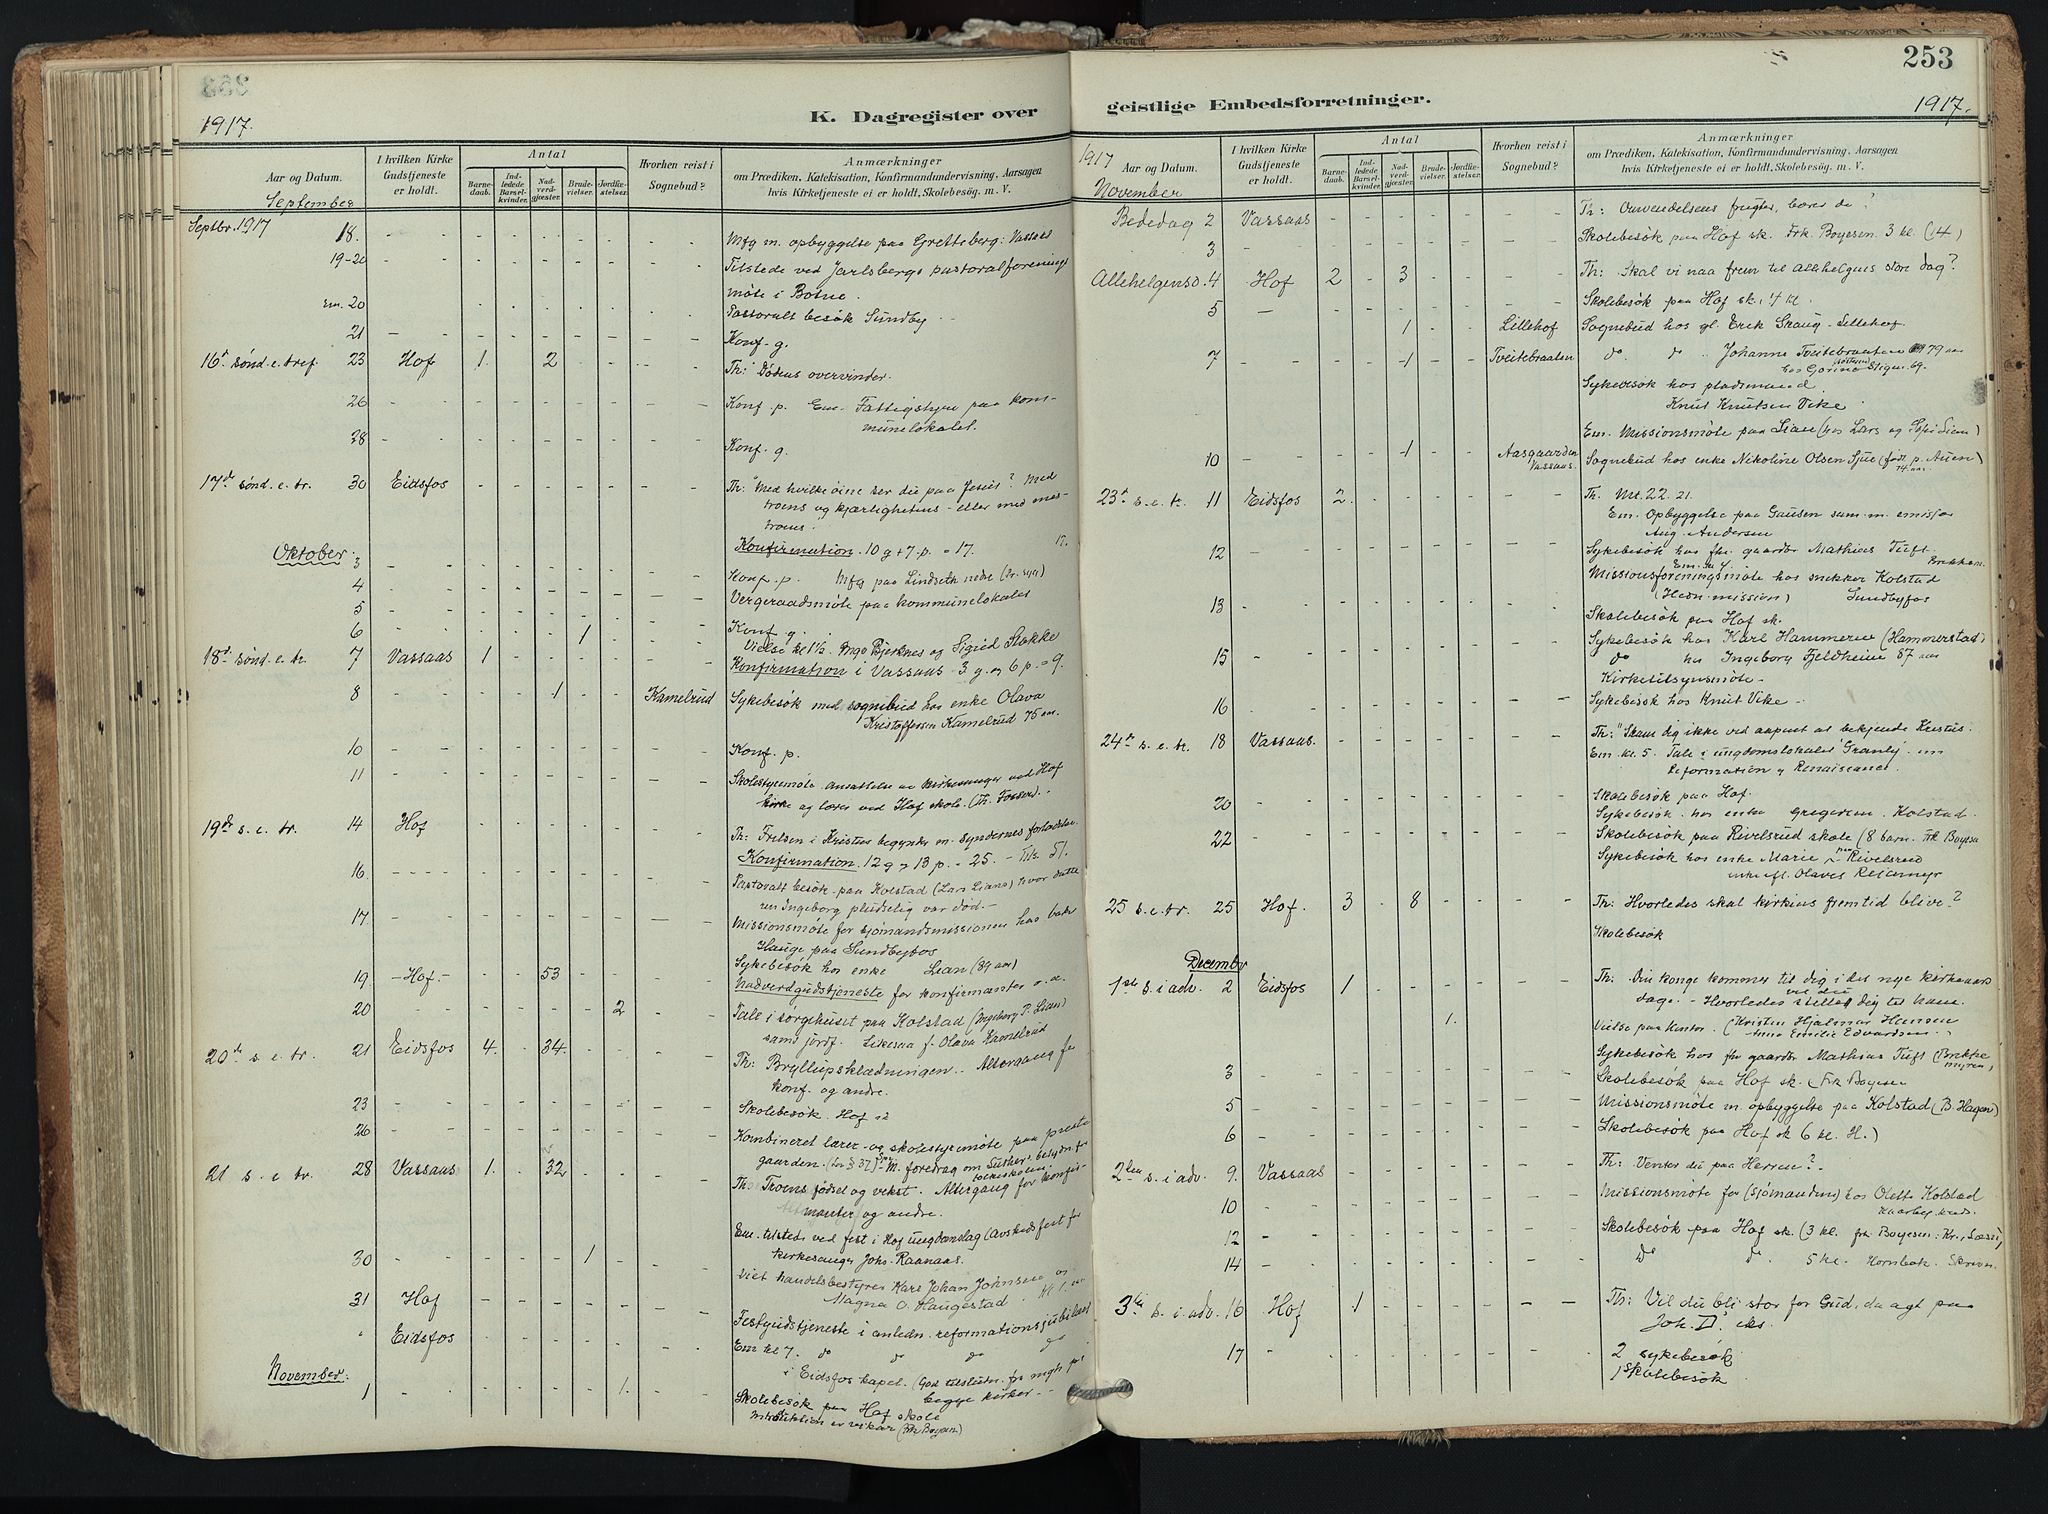 1917.
K. Dagregister over
Aar og Datum.
September
I hvilken Kirke Gudstjeneste er holdt.
Antal
Barnedaab.
Indledede Barselkvinder.
Nadverdgjæster.
Brudevielser.
Jordfæstelser.
Hvorhen reist i Sognebud?
Anmærkninger
om Prædiken, Katekisation, Konfirmandundervisning, Aarsagen
hvis Kirketjeneste ei er holdt, Skolebesög. m. V.
Septbr. 1917 18. Mfg m. opbyggelse paa Gretteberg: Vassaas
19-20 Tilstede ved Jarlsbergs pastoralforenings
møte i Botne.
Em. 20 Pastoralt besøk Sundby
21 Konf. g.
16d sønd. e. tref. 23 Hof 1. 2 Th: Dødens overvinder.
26 Konf. p. Em. Fattigstyre paa kom-
munelokalet.
28 Konf. g.
17de sønd. e. tr. 30 Eidsfos Th: "Med hvilke øine ser du paa Jesus? Med
troens og kjærlighetens - eller med
troens.
Konfirmation. 10 g + 7 p. = 17. 17.
Oktober.
3 Konf. p. Mfg paa Lindseth nedre
4 Vergeraadsmøte paa kommunelokalet
5 Konf g.
6 1 Vielse kl 1½. Inga Bjerknes og Sigrid Stokke
18d. sønd. e. tr. 7 Vassaas 1 Konfirmation i Vassaas - 3 g. og 6 p. = 9.
8 1 Kamelrud Sykebesøk med sognebud hos enke Olava
Kristoffersen Kamelrud 75 aar.
10 Konf. p.
11 Skolestyremøte. Ansættelse av kirkesanger ved Hof
kirke og lærer ved Hof skole. (Th. Fossen).
19de s. e. tr. 14 Hof Th: Frelsen i Kristus begynder m. syndernes forladelse.
Konfirmation. 12 g + 13 p. = 25. - Tils. 51.
16. Pastoralt besøk paa Kolstad (Lars Lians) hvor datte
ren Ingeborg pludselig var død. -
17 Missionsmøte for sjømandsmissionen hos
Hauge paa Sundbyfos
19 - Hof. - 53 Sykebesøk hos enke Lian (84 aar)
Nadverdgudstjeneste for konfirmanter o. a.
20 2 Tale i sorgehuset paa Kolstad (Ingeborg P. Lian)
samt jordf. Likesaa f. Olava Kamelrud
20de s. e. tr. 21 Eidsfos 4. 34. Th: Bryllupsklædningen. Altergang for
konf. og andre.
23 Skolebesøk. Hof
26 Kombineret lærer- og skolestyremøte paa preste
gaarden. M. foredrag om Luther's betydn. for
folkeskolen.
21 s. e tr. 28 Vassaas 1. 32 Th: Troens fødsel og vekst. Altergang for konfir-
manter og andre.
Em. tilstede ved fest i Hof ungdomslag (Avskedsfest for
kirkesanger Johs. Raanaas.
30 1 Viet handelsbestyrer Karl Johan Johnsen og
Magna O. Haugestad.
31 Hof Festgudstjeneste i anledn. reformationsjubilæet
" Eidsfos Em kl 7. do do do do
i Eidsfos kapel. (God tilslutn. fra
begge kirker. -
November.
1 1. Skolebesøk paa Hof skole
(Frk Boyesen)
253
geistlige Embedsforretninger.
1917.
1917
Aar og Datum.
November
I hvilken Kirke Gudstjeneste er holdt.
Antal
Barnedaab.
Indledede Barselkvinder.
Nadverdgjæster.
Brudevielser.
Jordfæstelser.
Hvorhen reist i Sognebud?
Anmærkninger
om Prædiken, Katekisation, Konfirmandundervisning, Aarsagen
hvis Kirketjeneste ei er holdt, Skolebesög. m. V.
Bededag 2 Vassaas Th: Omvendelsens frugter, bærer du?
3 Skolebesøk paa Hof sk. Frk. Boyesen 3 kl. (14)
Allehelgensd. 4 Hof 2 3 Th: Skal vi naa frem til allehelgens store dag?
5 Skolebesøk paa Hof sk. 4 kl.
1 Lillehof Sognebud hos gl. Erik Graug - Lillehof.
7 1 Tveitebraaten do do Johanne Tveitebraaten 79 aar
Sykebesøk hos pladsmand
Knut Knutsen Vike
Em. Missionsmøte paa Lian (hos Lars og Sofie Lian)
10 1 Aasgaarden Vassaas. Sognebud hos enke Nikoline Olsen Sjue (født p. Auen)
74 aar.
23d s. e. tr. 11 Eidsfos 2. Th. Mt. 22. 21.
Em. Opbyggelse paa Gausen sam. m. emissær
Aug. Andersen
12 Sykebesøk hos fhv. gaardbr Mathias Tuft
Brekken.
Em. kl 4
Missionsforeningsmøte hos snekker Kolstad
(Hedn. mission) Sundbyfos
13 Skolebesøk paa Hof sk.
Sykebesøk hos Karl Hammeren (Hammerstad)
15 do hos Ingeborg Fjeldheim 87 aar
Kirketilsynsmøte -
16 Sykebesøk hos Knut Vike -
24de s. e. tr. 18 Vassaas. Th: "Skam dig ikke ved aapent at bekjende Kristus.
Em kl. 5. Tale i ungdomslokalet "Granly" om
Reformation og Renaisance.
20 Skolebesøk paa Hof.
Sykebesøk hos enke Gregersen Kolstad.
22 Skolebesøk paa Rivelsrud skole (8 barn. Frk Boyesen
Sykebesøk hos enke Marie Rivelsrud
enke eft. Olaves Reiermyr
25 s. e. tr. 25 Hof. 3 8 Th: Hvorledes skal kirkens fremtid blive?
Skolebesøk
December
1ste s. i adv. 2 Eidsfos 1 Th: Din konge kommer til dig i det nye kirkeaars
dage. - Hvorledes vil du stille dig til ham.
1. Vielse paa Kontor. (Kristen Hjalmar Hansen
Anna Emilie Edvardsen.
Sykebesøk hos fhv gaardbr Mathias Tuft (Brekke
myren)
3 Skolebesøk paa Hof sk. (Frk Boyesen
5 Missionsmøte m. opbyggelse paa Kolstad (B. Hagen)
6 Skolebesøk paa Hof sk 6 kl. H.)
2den s. i adv. 9. Vassaas Th: Venter du paa Herren? -
10 Missionsmøte for (sjømandsm) hos Olette Kolstad
12 Skolebesøk paa Hof sk. (3 kl. frk Boyesen: Kr., Læsn)
14 do do 5 kl. Hornbæk. Skrivn.
3die s. i adv. 16 Hof 1 Th: Vil du bli stor for Gud, da agt paa
Joh. D. eks.
17 2 sykebesøk
1 skolebesøk